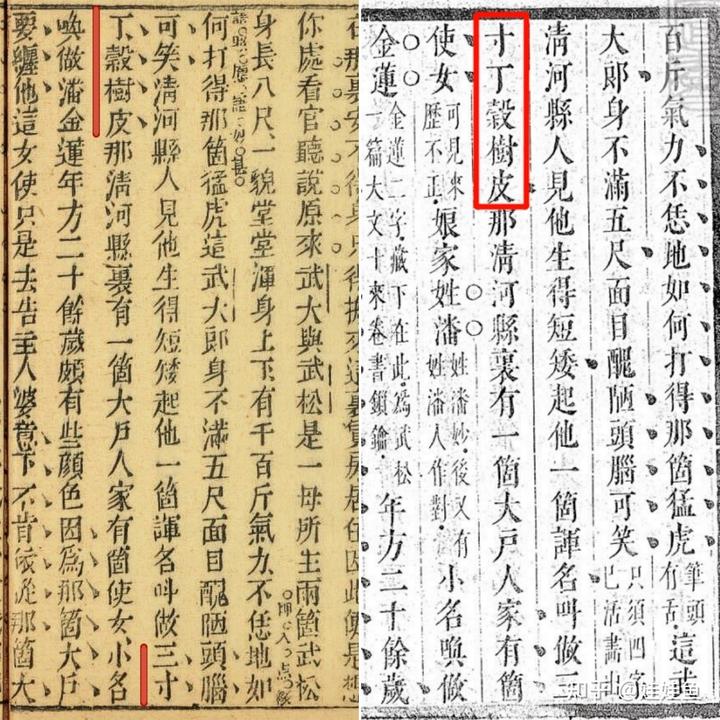 你處看官聽說原來武大與武松是一母所生兩箇武松
身長八尺一貌堂堂渾身上下有千百斤氣力不恁地如
何打得那箇猛虎這武大郎身不滿五尺面目醜陋頭腦
可笑清河縣人見他生得短矮起他一箇諢名叫做三寸
丁穀樹皮那清河縣裏有一箇大戶人家有箇使女小名
喚做潘金蓮年方二十餘歲頗有些顏色因爲那箇大戶
要纏他這女使只是去告主人婆意下不肯依從那箇大
百斤氣力不恁地如何打得那箇猛虎筆頭有舌這武
大郎身不滿五尺面目醜陋頭腦可笑只須四字巳活畫出
淸河縣人見他生得短矮起他一箇諢名叫做三
寸丁穀樹皮那淸河縣裏有一箇大戶人家有箇
使女可見來歷不正娘家姓潘姓潘妙後又有姓潘人作對小名喚做
金蓮金蓮二字藏下在此爲武松一篇大文十來卷書鎖鑰年方二十餘歲
知乎 @娃娃鱼